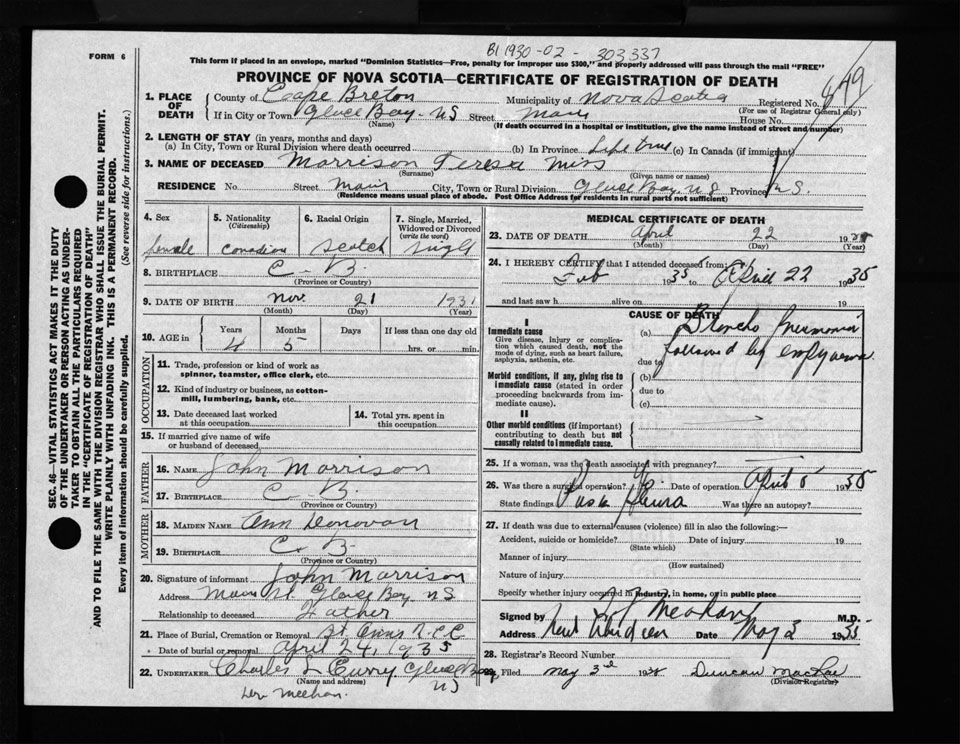 B1 1930-02- 303337
FORM 6
This form if placed in an envelope, marked "Dominion Statistics—Free, penalty for improper use $300," and properly addressed will pass through the mail "FREE"
PROVINCE OF NOVA SCOTIA—CERTIFICATE OF REGISTRATION OF DEATH
1. PLACE OF DEATH
County of Cape Breton Municipality of Nova Scotia Registered No.
(For use of Registrar General only)
If in City or Town Glace Bay. NS Street Main House No.
(Name) (If death occurred in a hospital or institution, give the name instead of street and number)
2. LENGTH OF STAY (in years, months and days)
(a) In City, Town or Rural Division where death occurred (b) In Province Life time (c) In Canada (if immigrant)
3. NAME OF DECEASED Morrison Teresa Miss
(Surname) (Given name or names)
RESIDENCE No. Street Main City, Town or Rural Division Glace Bay. N S Province N S.
(Residence means usual place of abode. Post Office Address for residents in rural parts not sufficient)
4. Sex female
5. Nationality (Citizenship) Canadian
6. Racial Origin Scotch
7. Single, Married, Widowed or Divorced (write the word) Single
8. BIRTHPLACE C. B.
(Province or Country)
9. DATE OF BIRTH Nov. 21 1931
(Month) (Day) (Year)
10. AGE in Years Months Days If less than one day old
4 5 hrs. or min.
OCCUPATION
11. Trade, profession or kind of work as spinner, teamster, office clerk, etc.
12. Kind of industry or business, as cotton-mill, lumbering, bank, etc.
13. Date deceased last worked at this occupation
14. Total yrs. spent in this occupation
15. If married give name of wife or husband of deceased
FATHER
16. NAME John Morrison
17. BIRTHPLACE C. B.
(Province or Country)
MOTHER
18. MAIDEN NAME Ann Donovan
19. BIRTHPLACE C. B.
(Province or Country)
20. Signature of informant John Morrison
Address Main St Glace Bay NS
Relationship to deceased Father
21. Place of Burial, Cremation or Removal St. Anns R.C.C
Date of burial or removal April 24, 1935
22. UNDERTAKER Charles L Curry. Glace Bay
(Name and address) NS
Meehan.
MEDICAL CERTIFICATE OF DEATH
23. DATE OF DEATH April 22 19
(Month) (Day) (Year)
24. I HEREBY CERTIFY that I attended deceased from:
Feb 1935 to April 22 1935
and last saw h alive on 19
CAUSE OF DEATH
I
Immediate cause
Give disease, injury or complication which caused death, not the mode of dying, such as heart failure, asphyxia, asthenia, etc.
(a) Broncho Pneumonia
followed by empyema
due to
Morbid conditions, if any, giving rise to immediate cause (stated in order proceeding backwards from immediate cause).
(b)
due to
(c)
II
Other morbid conditions (if important) contributing to death but not causally related to immediate cause.
25. If a woman, was the death associated with pregnancy?
26. Was there a surgical operation? Date of operation April 1935
State findings Pus in Was there an autopsy?
27. If death was due to external causes (violence) fill in also the following:—
Accident, suicide or homicide? Date of injury 19
(State which)
Manner of injury
(How sustained)
Nature of injury
Specify whether injury occurred in industry, in home, or in public place
Signed by Meehan M.D.
Address New Aberdeen Date May 3 1935
28. Registrar's Record Number
29. Filed May 3rd 19 Duncan MacRae
(Division Registrar)
SEC. 46—VITAL STATISTICS ACT MAKES IT THE DUTY
OF THE UNDERTAKER OR PERSON ACTING AS UNDER-
TAKER TO OBTAIN ALL THE PARTICULARS REQUIRED
IN THE "CERTIFICATE OF REGISTRATION OF DEATH"
AND TO FILE THE SAME WITH THE DIVISION REGISTRAR WHO SHALL ISSUE THE BURIAL PERMIT.
WRITE PLAINLY WITH UNFADING INK. THIS IS A PERMANENT RECORD.
Every item of information should be carefully supplied. (See reverse side for instructions.)